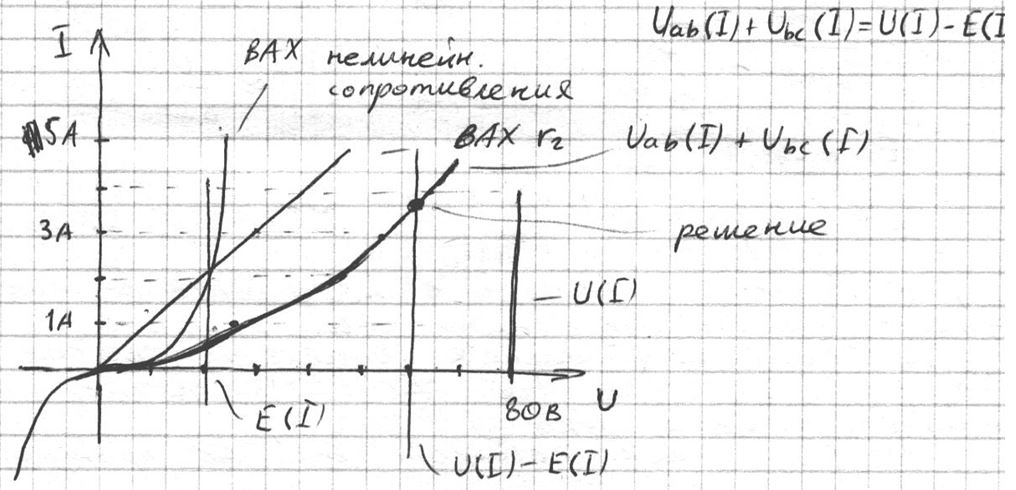 Uab(I) + Ubc(I) = U(I) - E(I
I
ВАХ нелинейн.
сопротивления
5А
ВАХ r2
Uab(I) + Ubc(I)
3А
решение
U(I)
1А
80В
U
E(I)
U(I) - E(I)